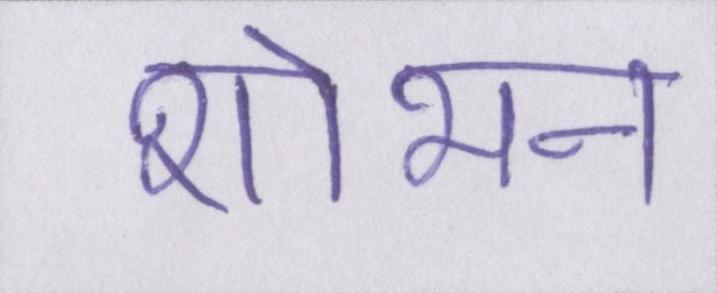 शोभन